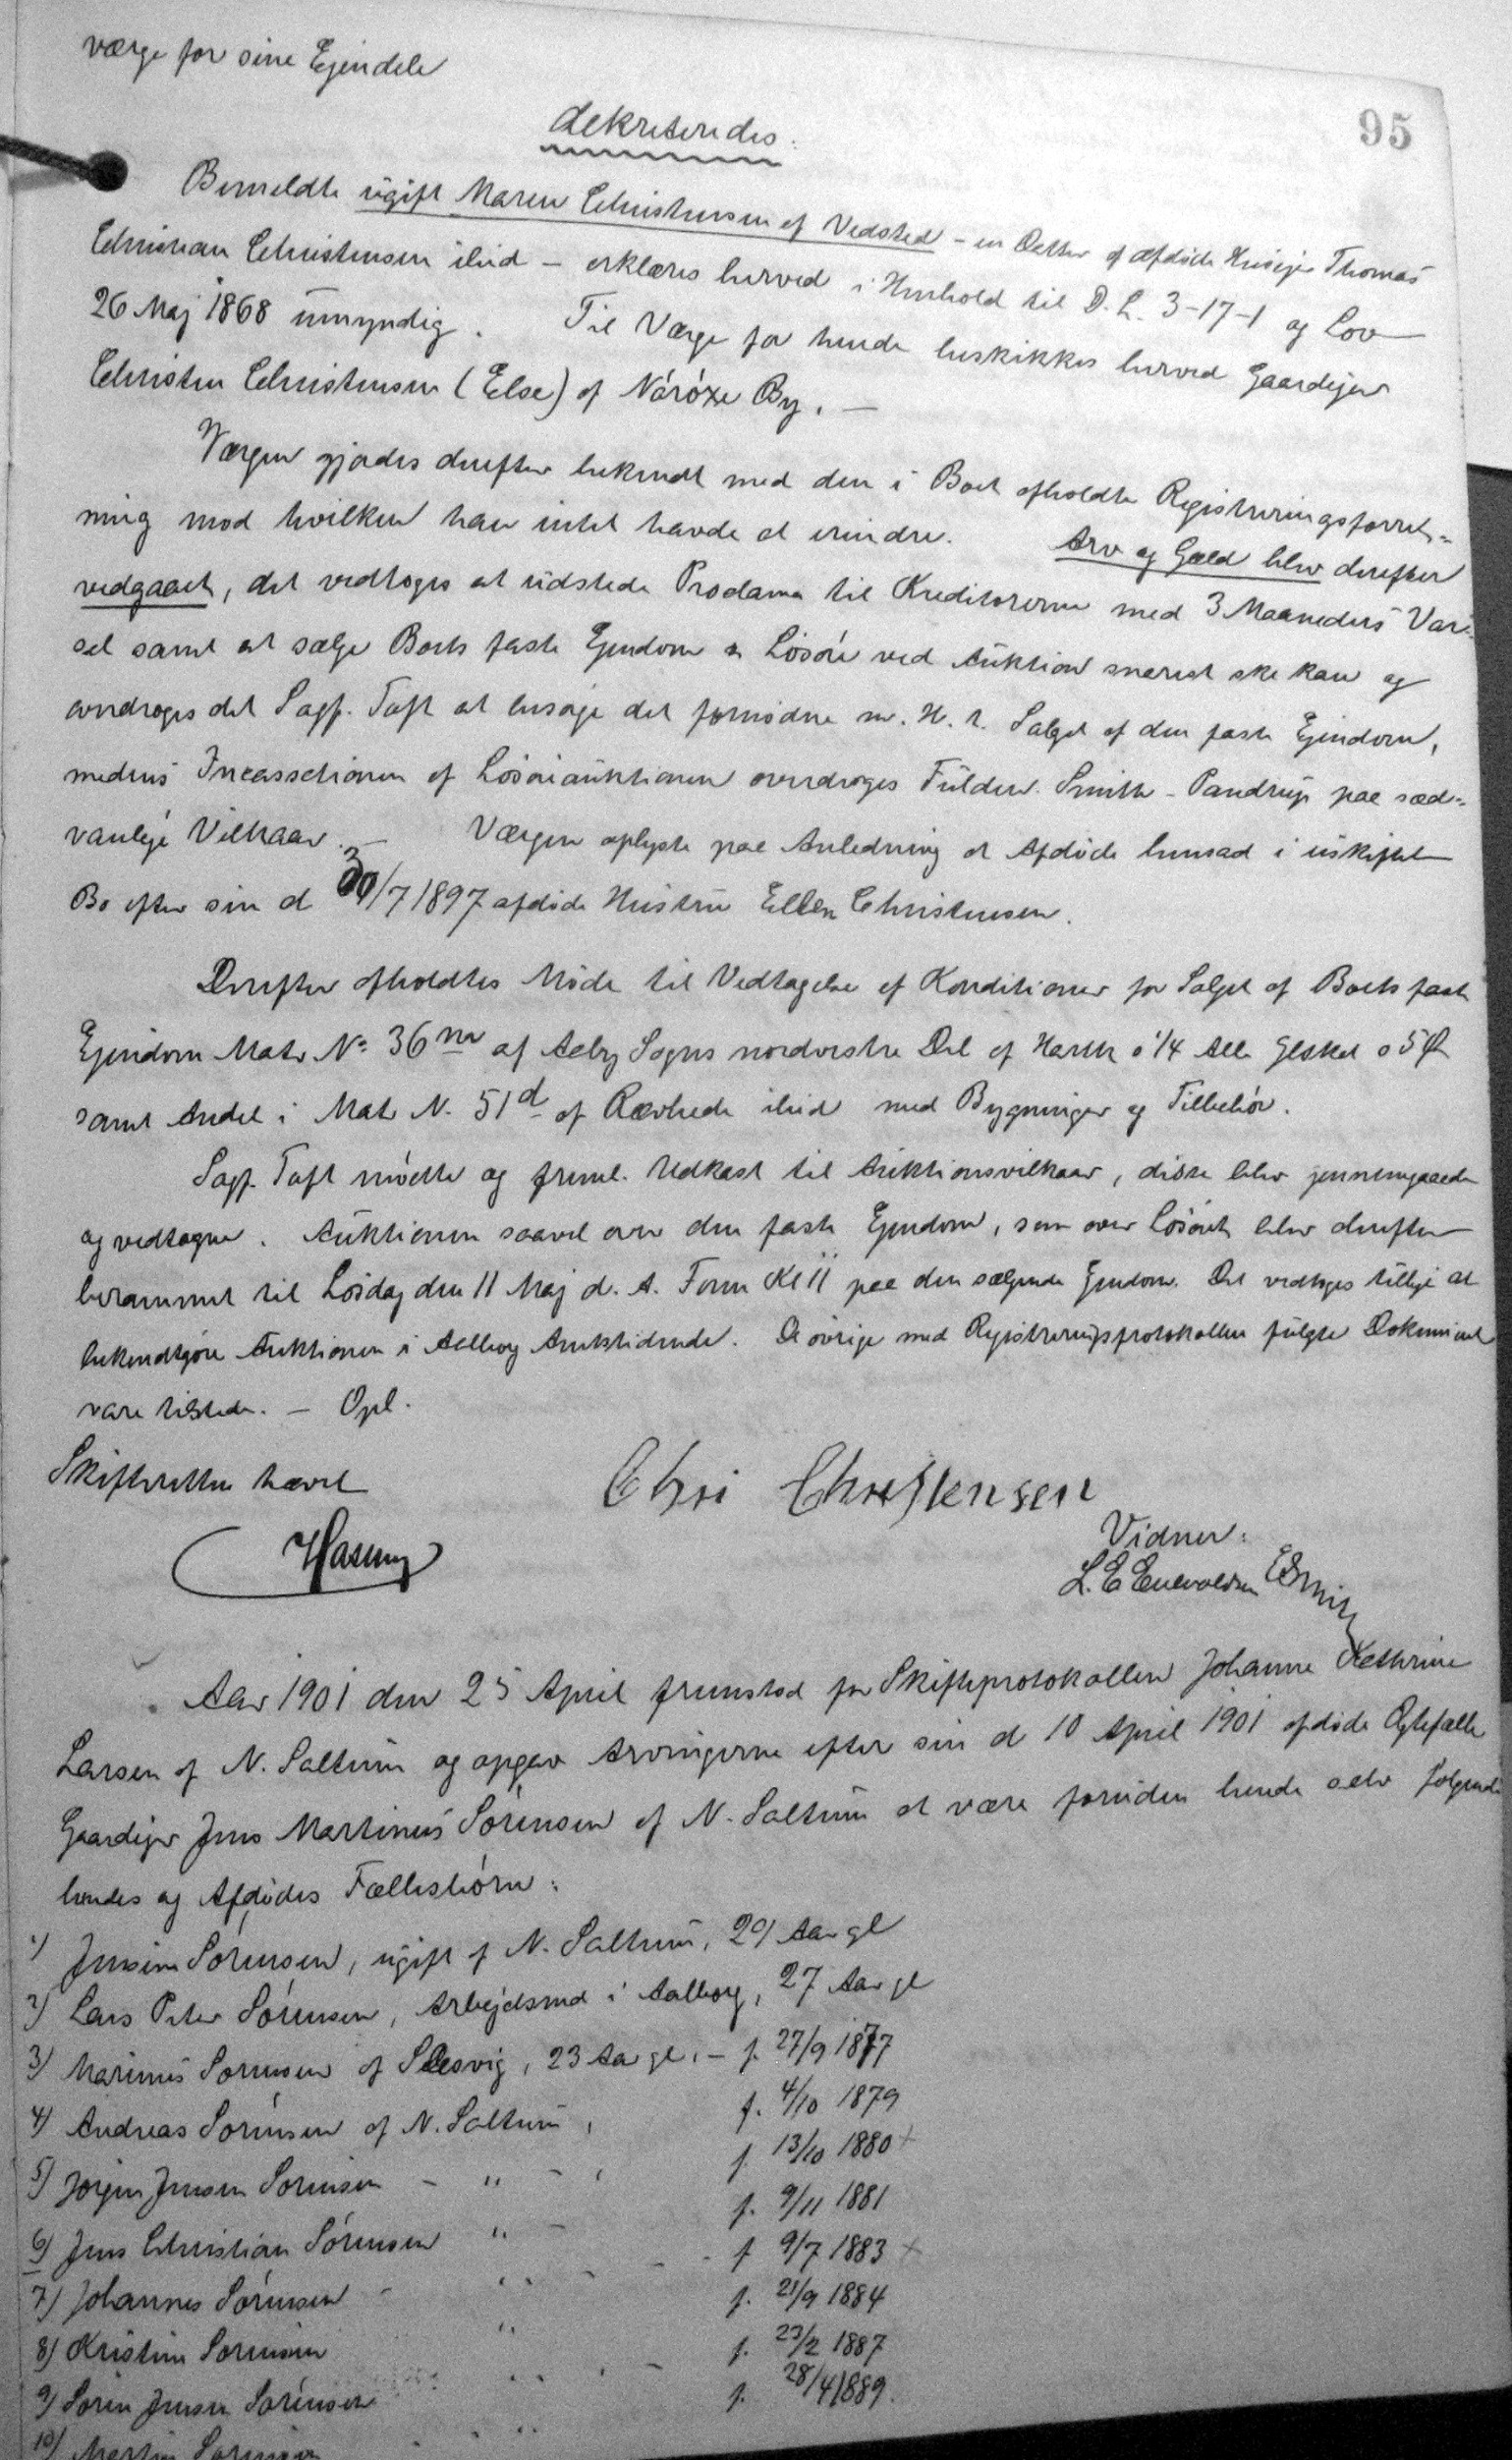 værge for sine Ejendele
95
dekreteredes:
Bemeldte ugift Maren Christensen af Vedsted - en Datter af afdøde Husejer Thomas
Christian Christensen ibid - erklæres herved i Henhold til D. L. 3-17-1 og Lov
26 Maj 1868 umyndig. Til Værge for hende beskikkes herved Gaardejer
Christen Christensen (Else) af By. —
Værgen gjordes derefter bekendt med den i Boet afholdte Registreringsforret-
ning mod hvilken han intet havde at erindre. Arv og Gæld blev derefter
vedgaaet, det vedtoges at udstede Proclama til Kreditorerne med 3 Maaneders Var-
sel samt at sælge Boets faste Ejendom & Løsøre ved Auktion snarest ske kan og
overdroges det Sagf. Toft at besørge det fornødne m. H. t. Salget af den faste Ejendom,
medens Incassationen af Løsøreauktionen overdroges Fuldm. Smith - Pandrup paa sæd-
vanlige Vilkaar. — Værgen oplyste paa Anledning at Afdøde hensad i uskiftet
Bo efter sin d 30/7 1897 afdøde Hustru Ellen Christensen.
Derefter afholdtes Møde til Vedtagelse af Konditioner for Salget af Boets faste
Ejendom Matr No 36 af Aaby Sogns nordvestre Del af Hartk ø 1/4 Alb Glskat
samt Andel i Matr N. 51d af Rævhede ibid med Bygninger og Tilbehør.
Sagf. Toft mødte og freml. Udkast til Auktionsvilkaar, disse blev gennemgaaede
og vedtagne. Auktionen saavel over den faste Ejendom, som over Løsøret blev derefter
berammet til Løsdag den 11 Maj d. A. Form Kl 11 paa den sælgende Ejendom. Det vedtoges tillige at
bekendtgøre Auktionen i Aalborg Amtstidende. De øvrige med Registreringsprotokollen fulgte Dokument
vare tilstede. — Opl.
Skifteretten hævet
Chri Christensen
Hasung
Vidner:
L. E Enevoldsen ESmith
Aar 1901 den 25 April fremstod for Skifteprotokollen Johanne Kathrine
Larsen af N. Saltum og opgav Arvingerne efter sin d 10 April 1901 afdøde Ægtefælle
Gaardejer Jens Martinus Sørensen af N. Saltum at være foruden hende selv følgende
hendes og Afdødes Fællesbørn:
1) Jensine Sørensen, ugift af N. Saltum, 29 Aar gl
2) Lars Peter Sørensen, Arbejdsmd i Aalborg, 27 Aar gl
3) Marinus Sørensen af Slesvig, 23 Aar gl. - f. 27/9 1877
4) Andreas Sørensen af N. Saltum, f. 4/10 1879
5) Jørgen Jensen Sørensen - " - f. 13/10 1880 +
6) Jens Christian Sørensen " - f. 9/11 1881
7) Johannes Sørensen - " - f 9/7 1883 +
8) Kristine Sørensen " f. 21/9 1884
9) Søren Jensen Sørensen " - f. 23/2 1887
10) Martin Sørensen " f. 28/4 1889.